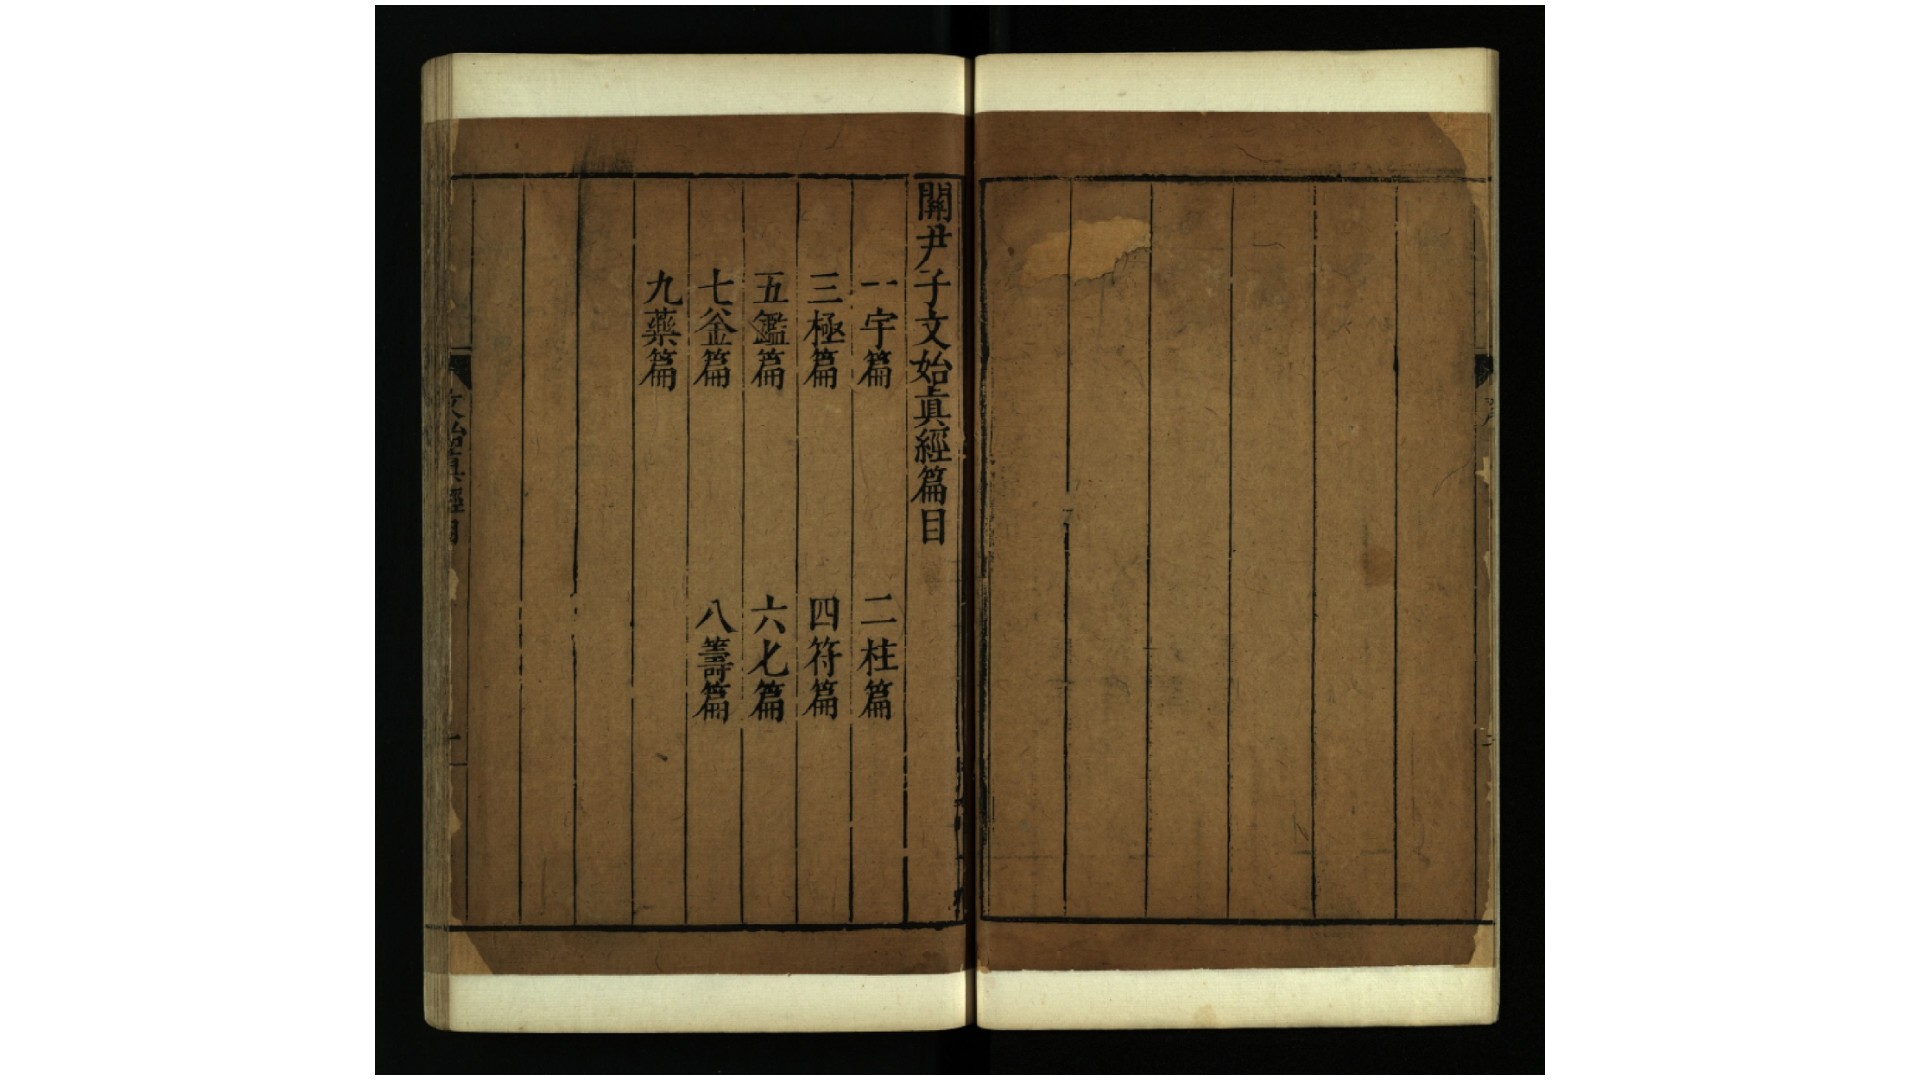 關尹子文始眞經篇目
一宇篇 二柱篇
三極篇 四符篇
五鑑篇 六匕篇
七釜篇 八籌篇
九藥篇
文始眞經目